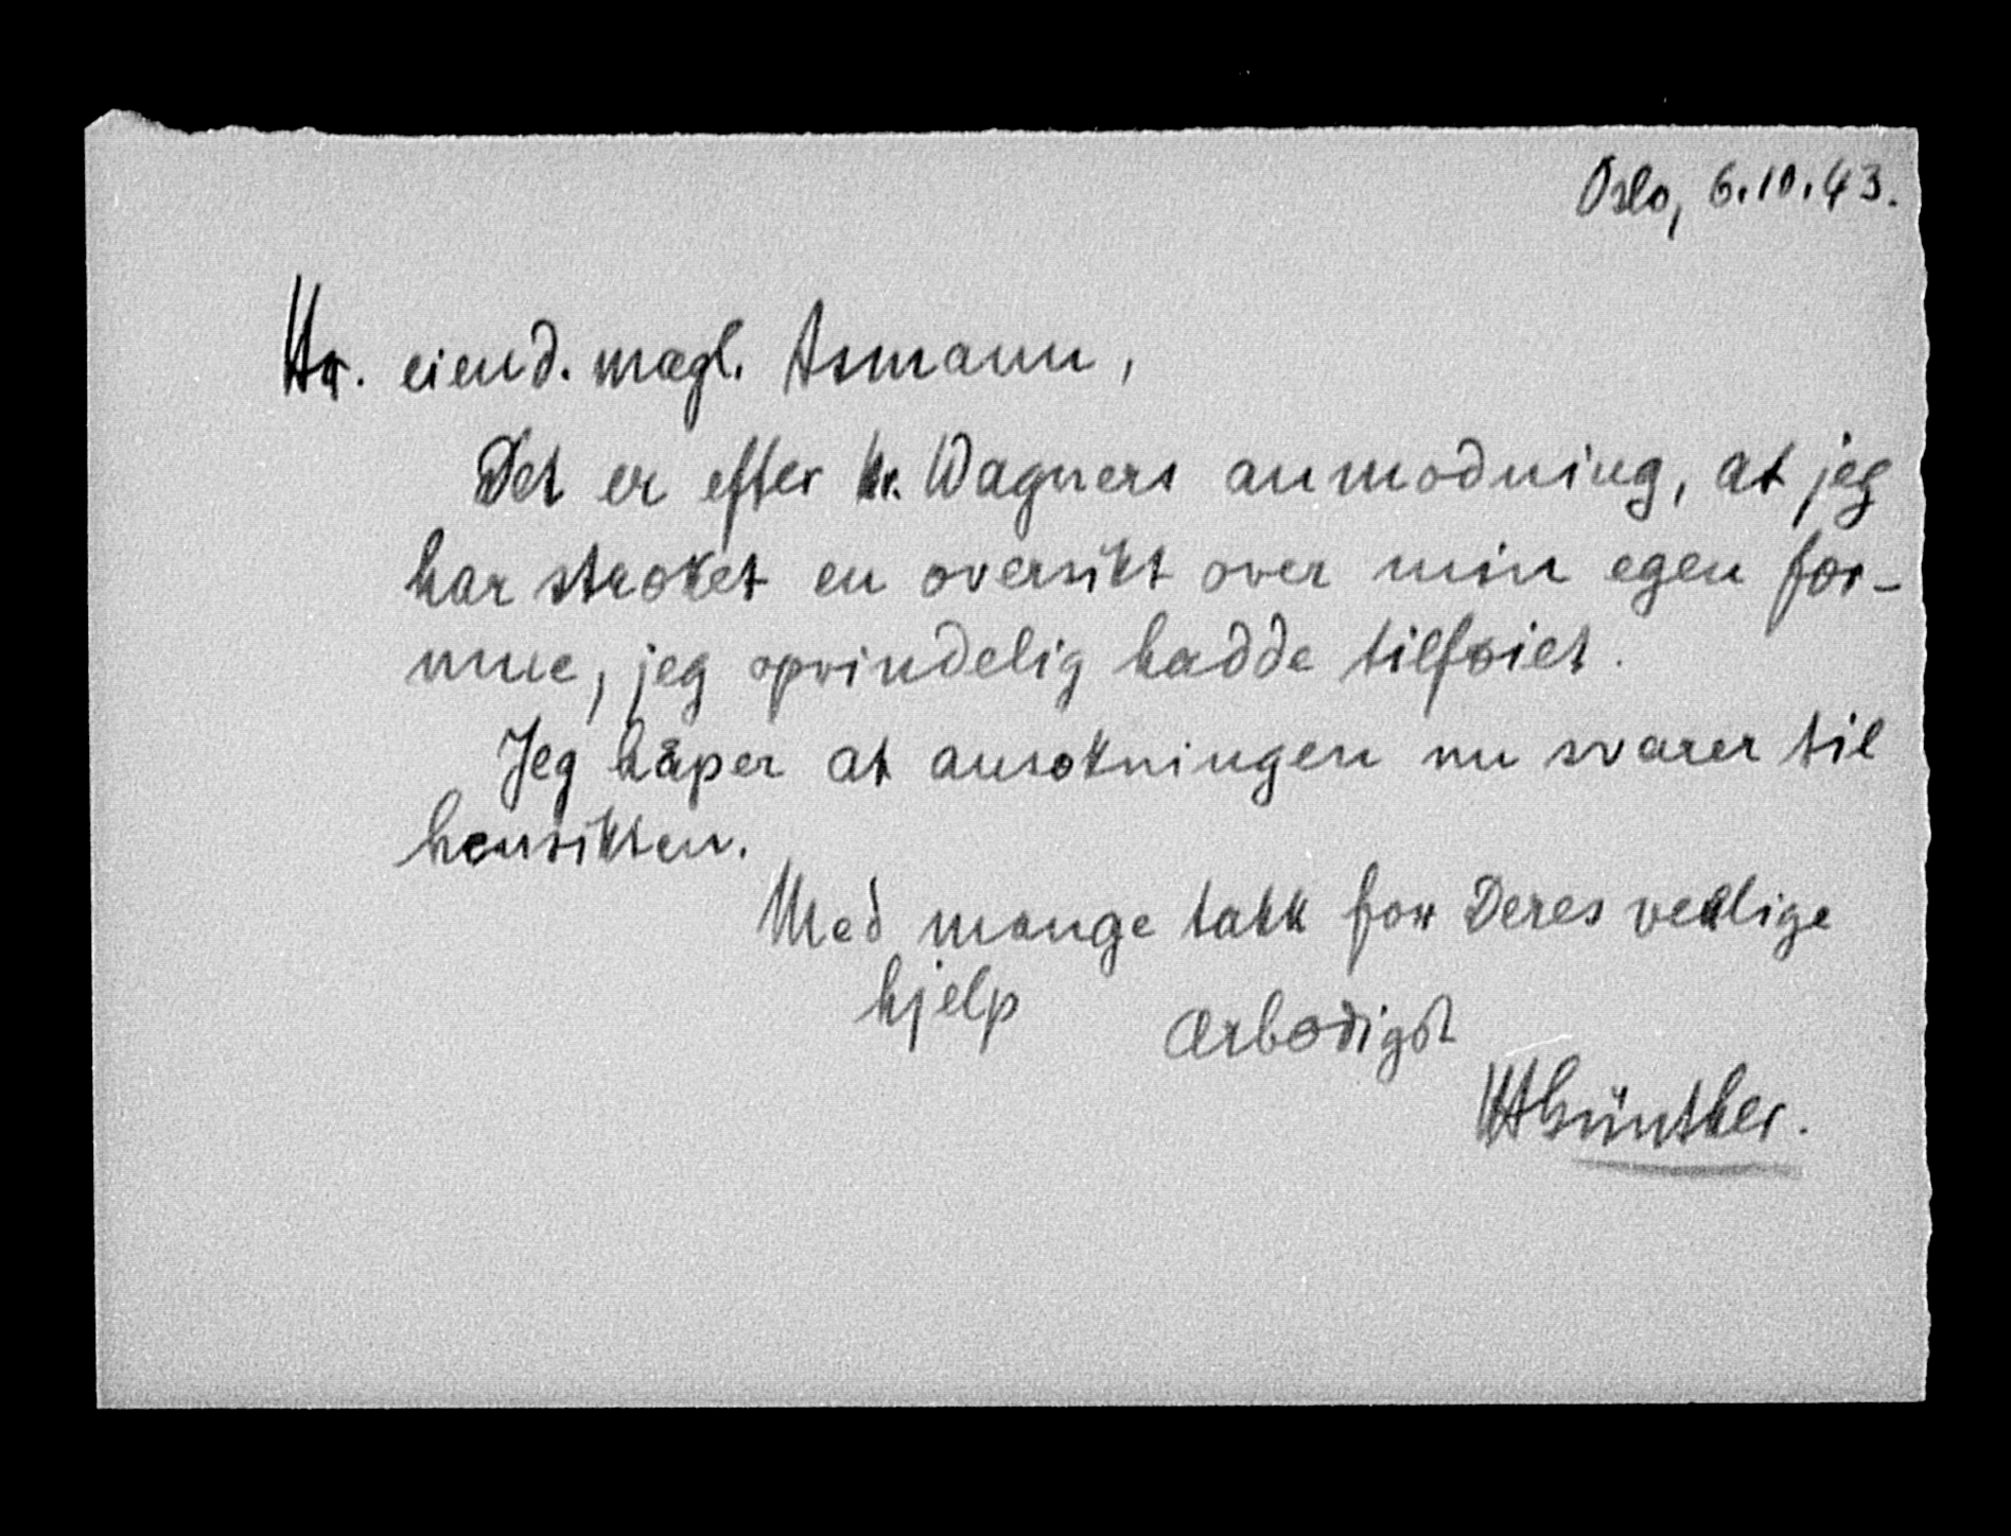 Oslo, 6.10.43.
Hr. eiend. mægl. Asmann,
Det er efter hr. Wagners anmodning, at jeg
har strøket en oversikt over min egen for-
mue, jeg oprindelig hadde tilføiet.
Jeg håper at ansøkningen nu svarer til
hensikten.
Med mange takk for Deres venlige
hjelp
Ærbødigst
HAGünther.